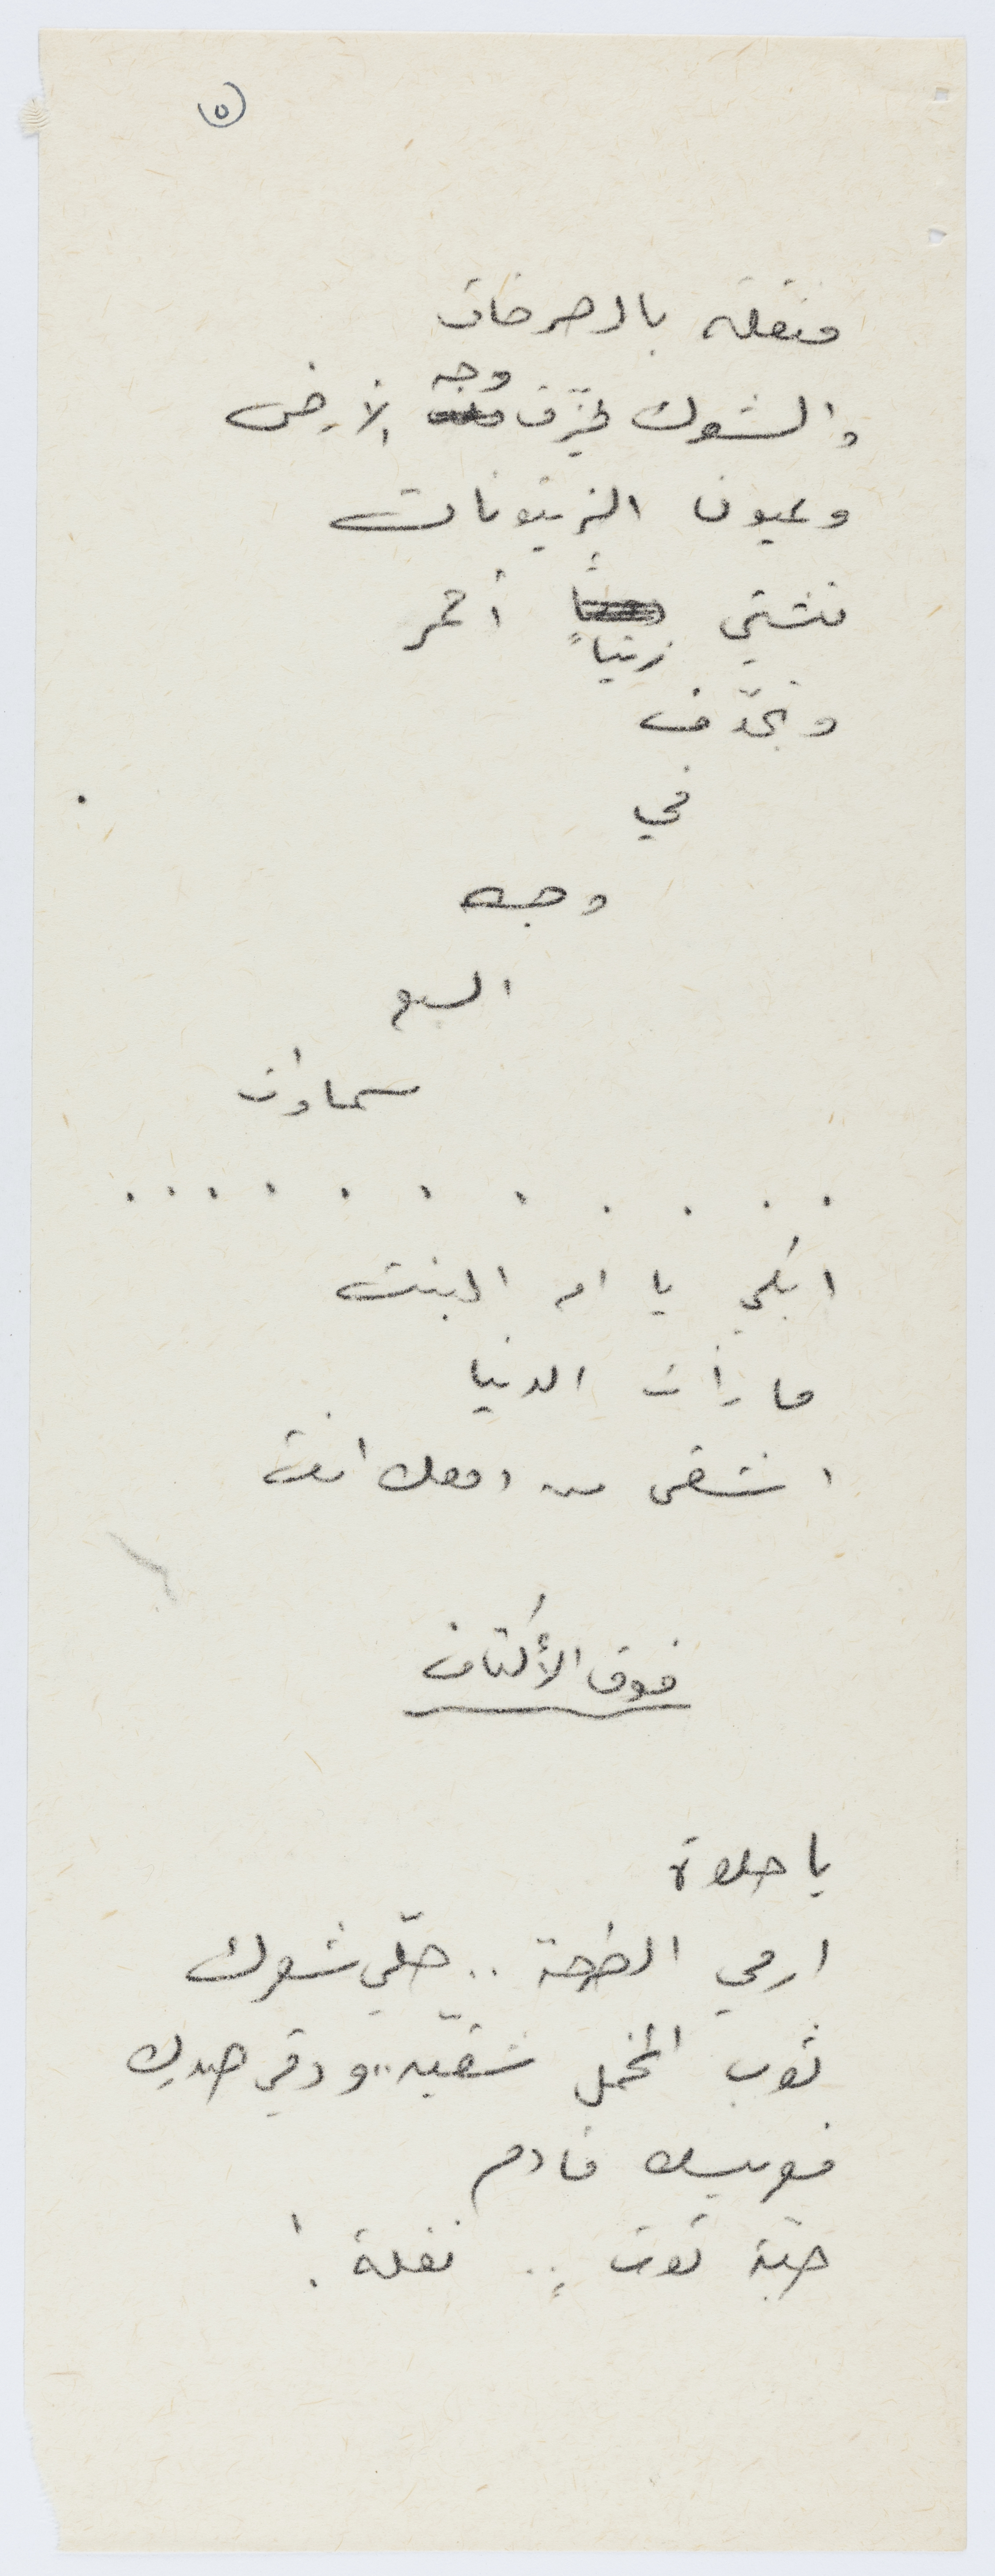 ٥
مثقلة بالصرخات
والشوك يخزّق وجه الأرض
وعيون الزيتونات
تشتي زيتياً أحمر
وتجدّف
في
وجه
السبع
سماوات
. . . . . . . . . . .
ابكي يا ام البنت
ما رأت الدنيا
اشقى من امك انت
فوق الأكتاف
يا حلوة
ارمي الطرحة .. حلّي شعرك
ثوب المخمل شقّيه .. ودقي صدرك
فعريسك قادم
حبّة توت .. نفلة !